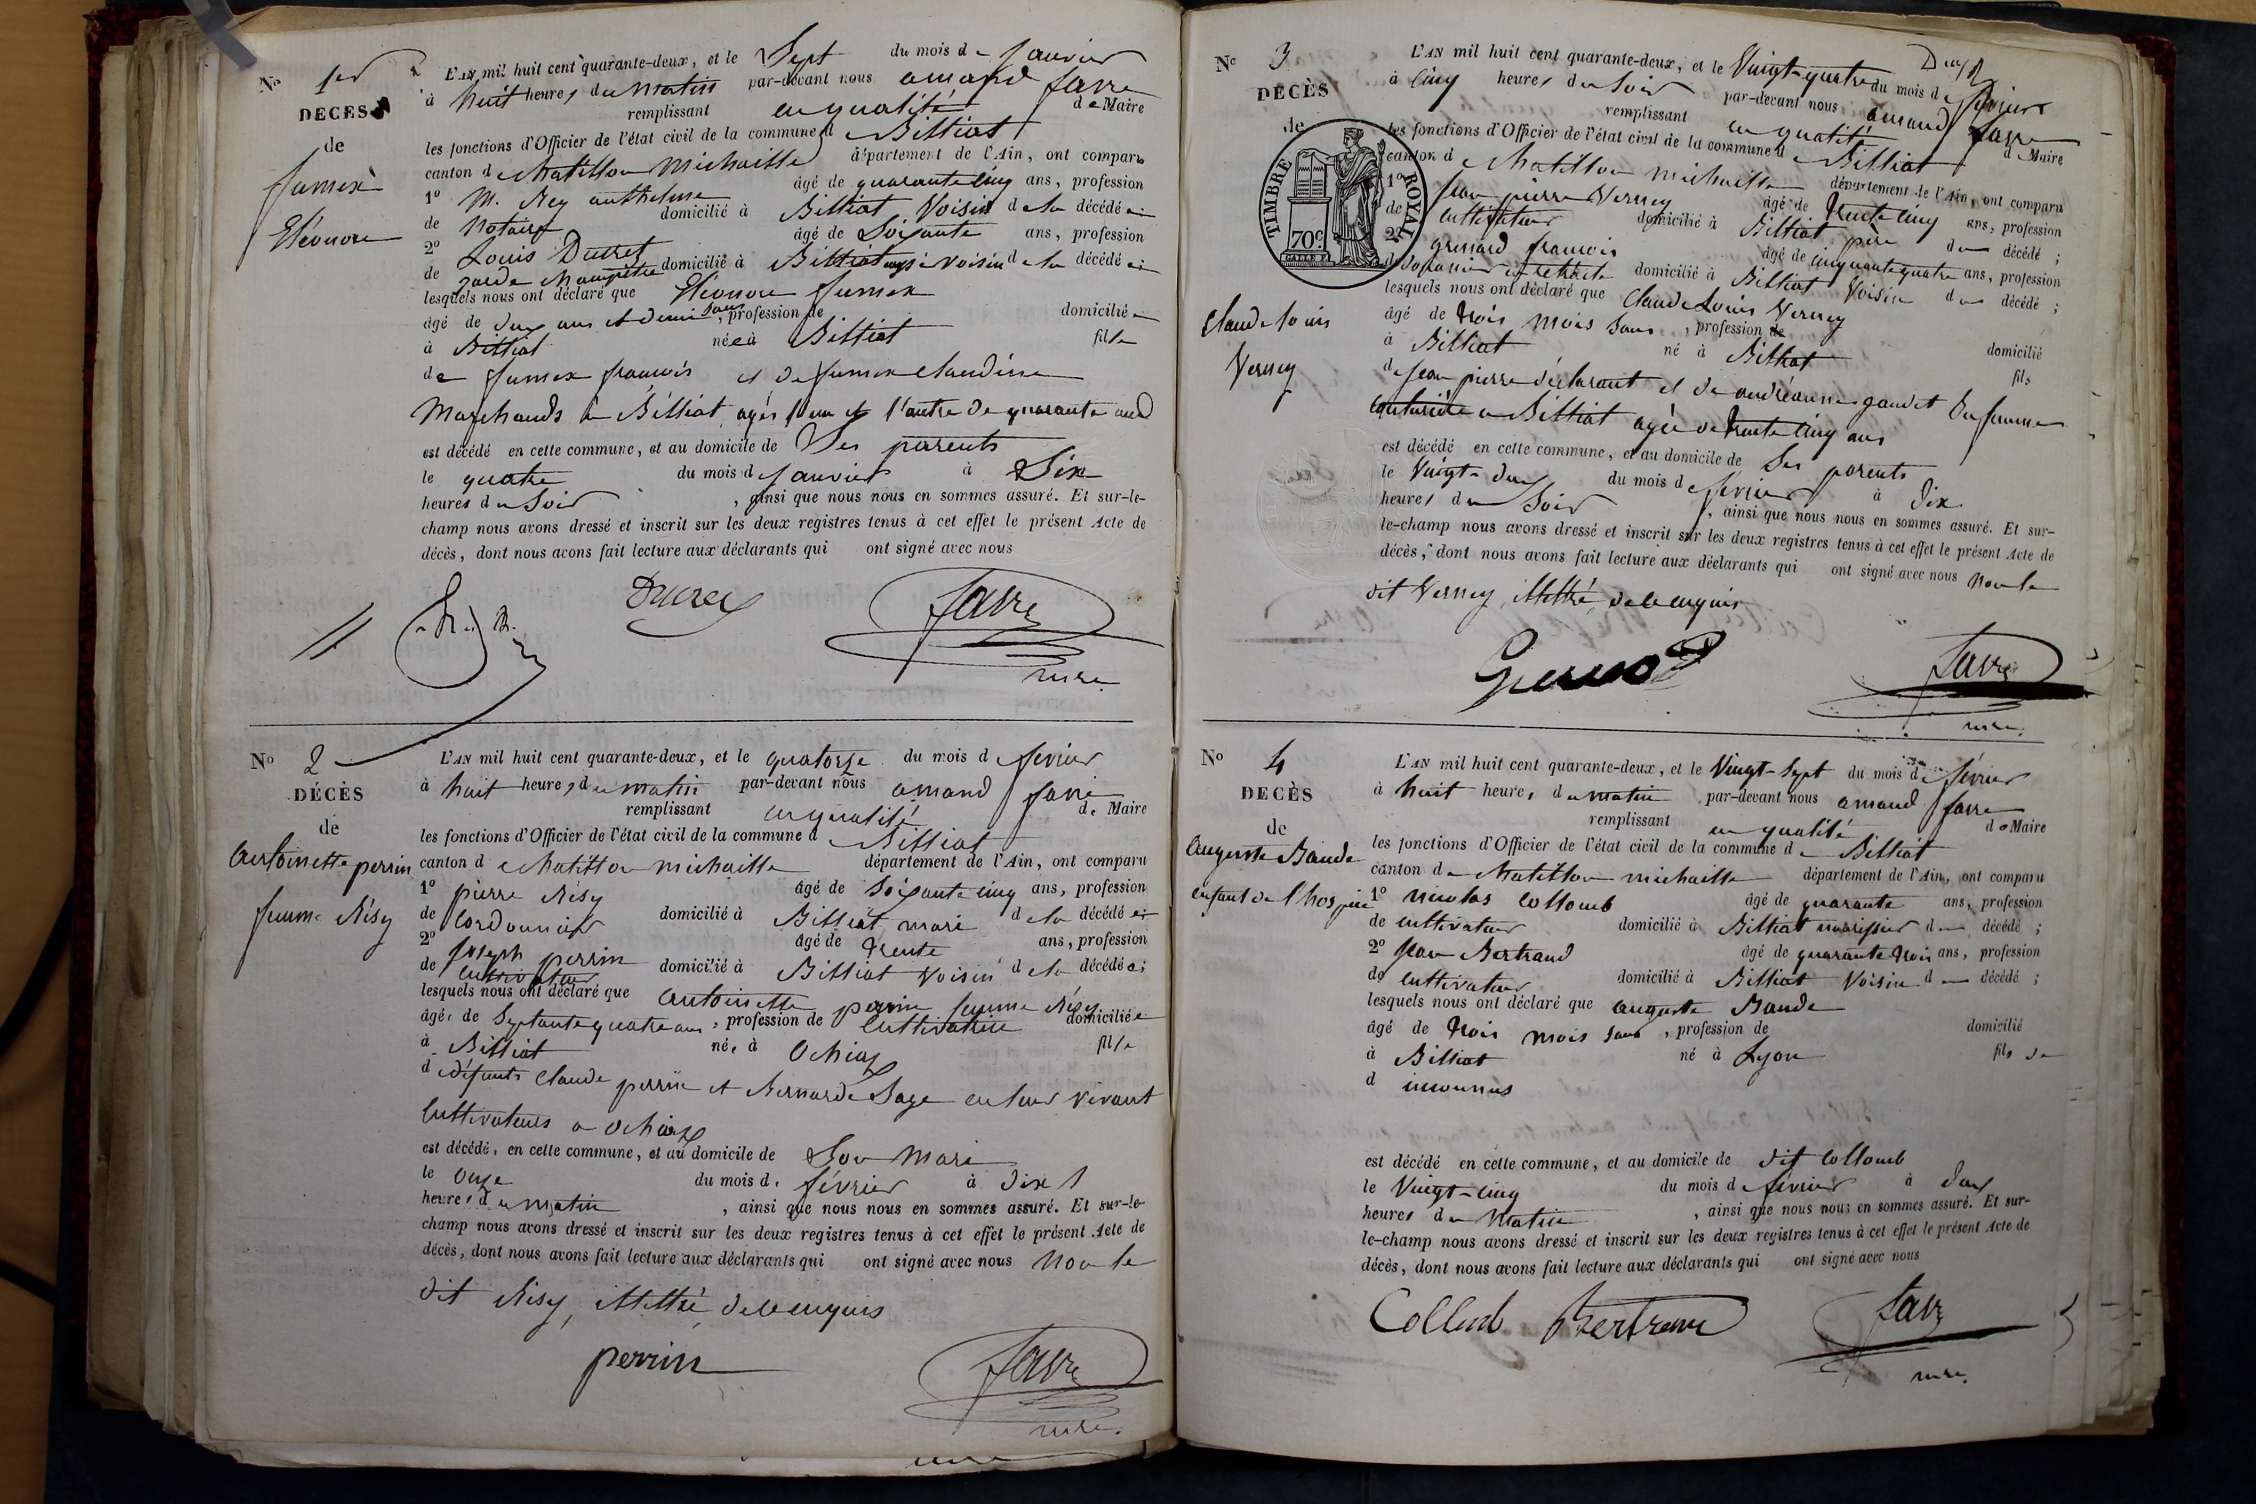 No 1er
DÉCÈS
de
fumex
Eléonore
L'AN mil huit cent quarante-deux, et le Sept du mois de janvier
à huit heures du matin par-devant nous amand favre
remplissant en qualité de Maire
les fonctions d'Officier de l'état civil de la commune d Billiat
canton de Chatillon michaille département de l'Ain, ont comparu
1o M. Rey anthelme âgé de quarante cinq ans, profession
de Notaire domicilié à Billiat Voisin de la décédée
2o Louis Ducret âgé de Soixante ans, profession
de garde champêtre domicilié à Billiat aussi voisin de la décédée
lesquels nous ont déclaré que Eléonore fumex
âgé de deux ans et demi sans, profession de domiciliée
à Billiat née à Billiat fille
de fumex françois et de fumex claudine
Marchands à Billiat agés l'un et l'autre de quarante ans
est décédé en cette commune, et au domicile de Ses parents
le quatre du mois de janvier à Six
heures du Soir, ainsi que nous nous en sommes assuré. Et sur-le-
champ nous avons dressé et inscrit sur les deux registres tenus à cet effet le présent Acte de
décès, dont nous avons fait lecture aux déclarants qui ont signé avec nous
Ducret favre
mre.
No 2
DÉCÈS
de
Antoinette perrin
femme Résy
L'AN mil huit cent quarante-deux, et le quatorze du mois de février
à huit heures du matin par-devant nous amand favre
remplissant en qualité de Maire
les fonctions d'Officier de l'état civil de la commune d Billiat
canton de Chatillon michaille département de l'Ain, ont comparu
1o pierre Résy âgé de Soixante cinq ans, profession
de Cordonnier domicilié à Billiat mari de la décédée
2o Joseph perrin âgé de trente ans, profession
de cultivateur domicilié à Billiat Voisin de la décédée;
lesquels nous ont déclaré que antoinette perrin femme Résy
âgée de Septante quatre ans, profession de Cultivatrice domiciliée
à Billiat née à Ochiaz fille
d défunts Claude perrin et Bernarde Sage en leur vivant
Cultivateurs a Ochiaz
est décédé, en cette commune, et au domicile de Son Mari
le onze du mois de février à dix
heures du matin, ainsi que nous nous en sommes assuré. Et sur-le-
champ nous avons dressé et inscrit sur les deux registres tenus à cet effet le présent Acte de
décès, dont nous avons fait lecture aux déclarants qui ont signé avec nous Non le
dit Résy, illettré, de ce enquis
perrin favre
mre.
No 3
DÉCÈS
de
Claude louis
Verney
TIMBRE ROYAL
70c
L'AN mil huit cent quarante-deux, et le Vingt-quatre du mois de février
à Cinq heures du Soir par-devant nous amand favre
remplissant en qualité de Maire
les fonctions d'Officier de l'état civil de la commune d Billiat
canton de Chatillon michaille département de l'Ain, ont comparu
1o Jean pierre Verney âgé de trente cinq ans, profession
de cultivateur domicilié à Billiat père du décédé;
2o françois âgé de cinquante quatre ans, profession
de Douanier en retraite domicilié à Billiat Voisin du décédé;
lesquels nous ont déclaré que Claude Louis Verney
âgé de trois mois Sans, profession de domicilié
à Billiat né à Billiat fils
de Jean pierre déclarant et de andréanne gaudet Sa femme
couturière a Billiat agée de trente cinq ans
est décédé en cette commune, et au domicile de Ses parents
le Vingt-deux du mois de février à dix
heures du Soir, ainsi que nous nous en sommes assuré. Et sur-
le-champ nous avons dressé et inscrit sur les deux registres tenus à cet effet le présent Acte de
décès, dont nous avons fait lecture aux déclarants qui ont signé avec nous Non le
dit Verney illettré, de ce enquis
favre
mre.
No 4
DÉCÈS
de
Auguste Baude
enfant de l'hospice
L'AN mil huit cent quarante-deux, et le Vingt-Sept du mois de février
à huit heures du matin par-devant nous amand favre
remplissant en qualité de Maire
les fonctions d'Officier de l'état civil de la commune de Billiat
canton de Chatillon michaille département de l'Ain, ont comparu
1o nicolas Collomb âgé de quarante ans, profession
de cultivateur domicilié à Billiat nourricier du décédé;
2o Jean Bertrand âgé de quarante trois ans, profession
de cultivateur domicilié à Billiat Voisin du décédé;
lesquels nous ont déclaré que auguste Baude
âgé de trois mois sans, profession de domicilié
à Billiat né à Lyon fils de
d inconnus
est décédé en cette commune, et au domicile de dit Collomb
le Vingt-cinq du mois de février à deux
heures du Matin, ainsi que nous nous en sommes assuré. Et sur-
le-champ nous avons dressé et inscrit sur les deux registres tenus à cet effet le présent Acte de
décès, dont nous avons fait lecture aux déclarants qui ont signé avec nous
Collomb Bertrand favre
mre.